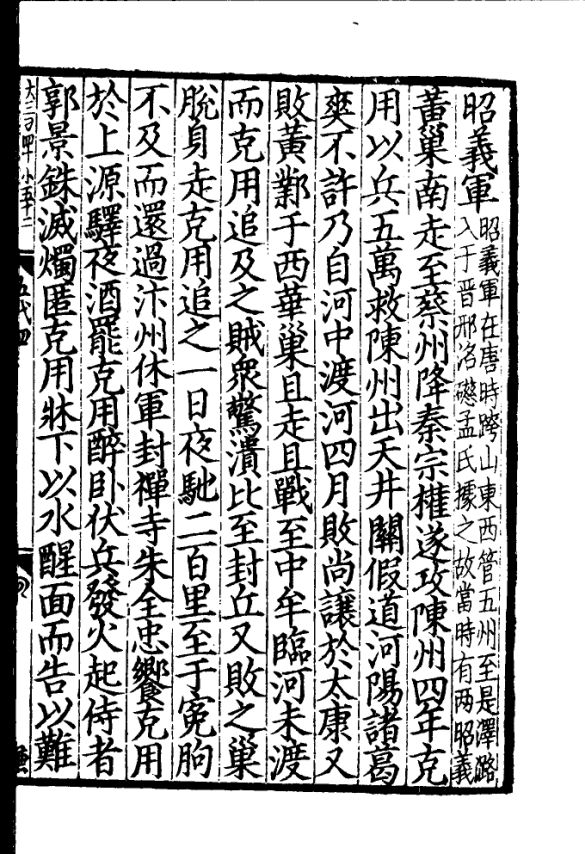 昭義軍昭義軍在唐時跨山東西管五州至是澤潞
入于晉邢洺磁孟氏據之故當時有两昭義
黃巢南走至蔡州降秦宗權遂攻陳州四年克
用以兵五萬救陳州出天井關假道河陽諸葛
爽不許乃自河中渡河四月敗尚讓於太康又
敗黃鄴于西華巢且走且戰至中牟臨河未渡
而克用追及之賊衆驚潰比至封丘又敗之巢
脫身走克用追之一日夜馳二百里至于冤朐
不及而還過汴州休軍封禪寺朱全忠饗克用
於上源驛夜酒罷克用醉卧伏兵發火起侍者
郭景銖滅燭匿克用牀下以水醒面而告以難
五代四